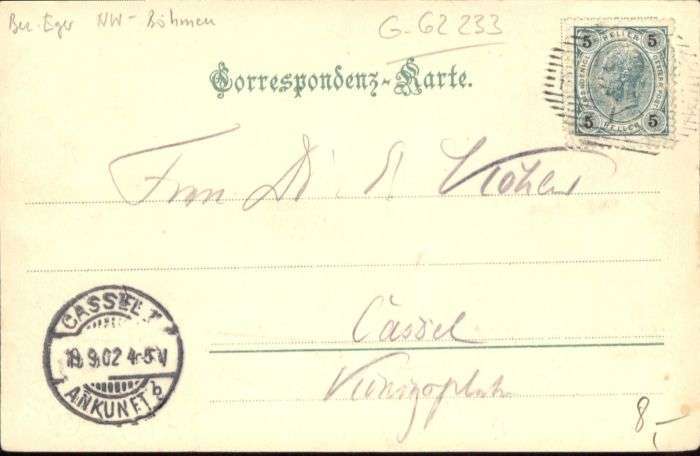 Bez. Eger NW-Böhmen
G-62 233
5 HELLER 5
5 HELLER 5
Correspondenz-Karte.
Frau Dr Köhler
Cassel
CASSEL 1
19.9.02 4-5V
ANKUNFT b
Königsplatz
8,-